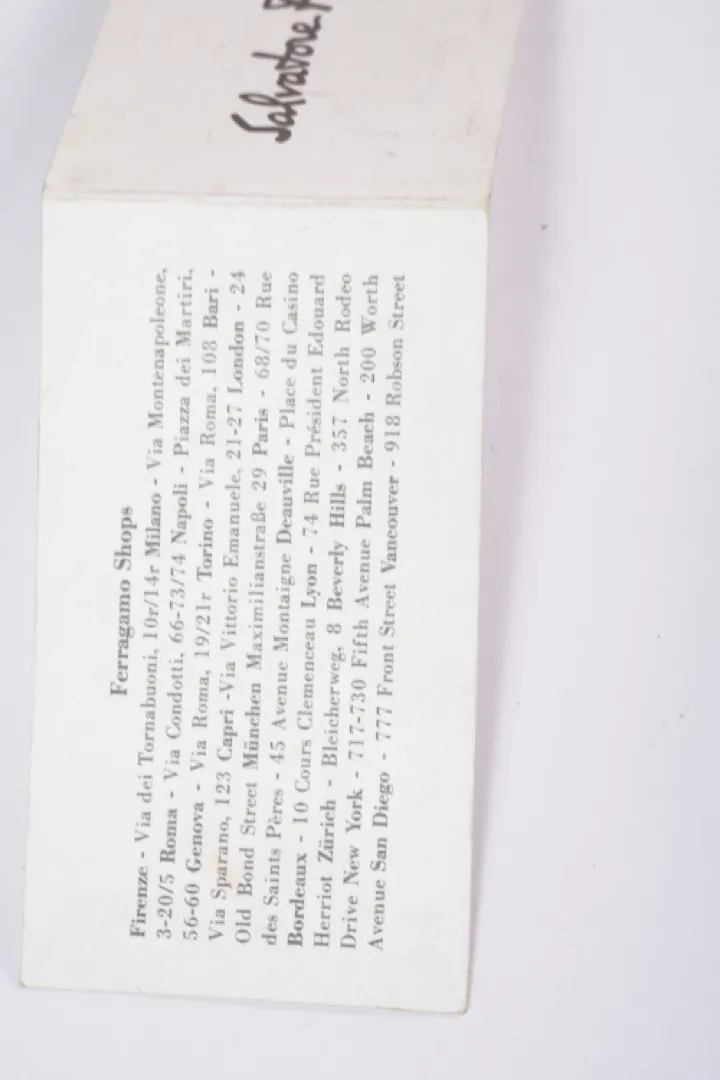 Salvatore
Ferragamo Shops
Firenze - Via dei Tornabuoni, 10r/14r Milano - Via Montenapoleone,
3-20/5 Roma - Via Condotti, 66-73/74 Napoli - Piazza dei Martiri,
56-60 Genova - Via Roma, 19/21r Torino - Via Roma, 108 Bari -
Via Sparano, 123 Capri -Via Vittorio Emanuele, 21-27 London - 24
Old Bond Street München Maximilianstraße 29 Paris - 68/70 Rue
des Saints Pères - 45 Avenue Montaigne Deauville - Place du Casino
Bordeaux - 10 Cours Clemenceau Lyon - 74 Rue Président Edouard
Herriot Zürich - Bleicherweg, 8 Beverly Hills - 357 North Rodeo
Drive New York - 717-730 Fifth Avenue Palm Beach - 200 Worth
Avenue San Diego - 777 Front Street Vancouver - 918 Robson Street